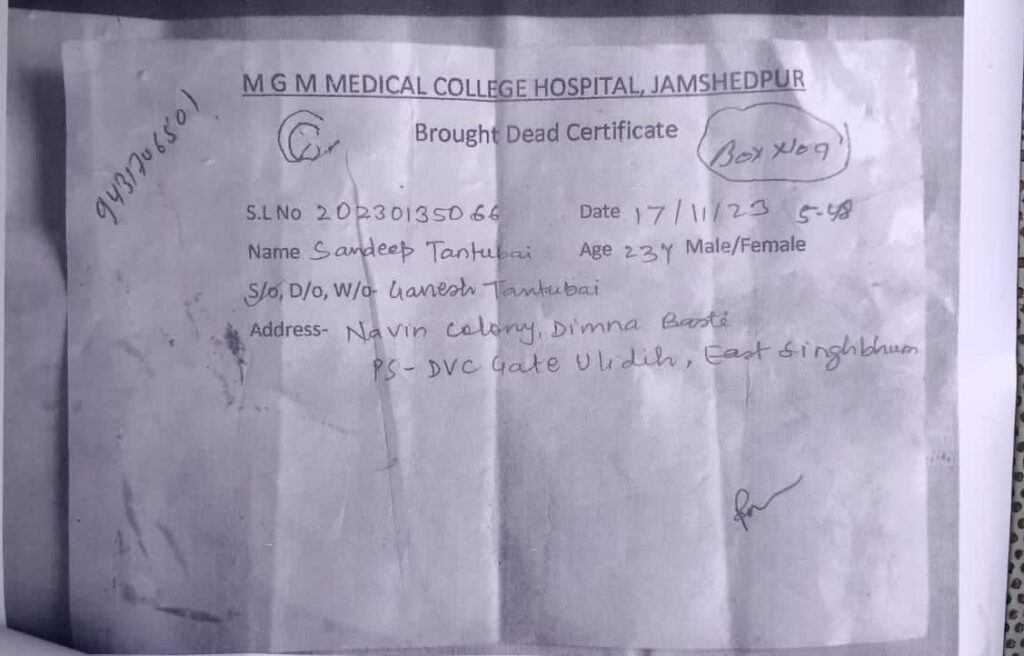 M G M MEDICAL COLLEGE HOSPITAL, JAMSHEDPUR
Brought Dead Certificate
Box No 9
9431706501
S.L No 20230135066 Date 17/11/23 5-48
Name Sandeep Tantubai Age 23Y Male/Female
S/o, D/o, W/o- Ganesh Tantubai
Address- Navin Colony, Dimna Basti
PS- DVC Gate Ulidih, East Singhbhum